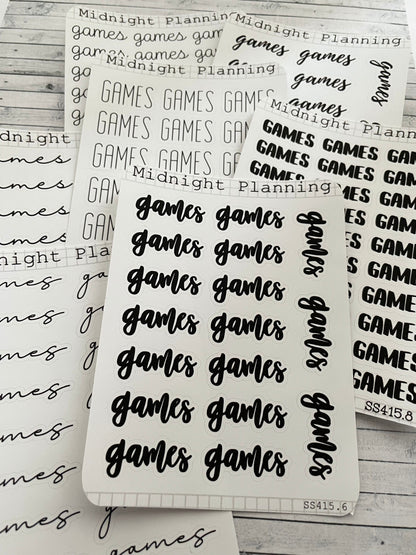 Midnight Planning
games games games
games games games
games
Midnight Planning
games games
games
games
games
Midnight Planning
GAMES GAMES GAMES
GAMES GAMES
GAMES
GAMES
Midnight
GAMES GAMES GAMES
GAMES GAMES GAMES
GAMES GAMES GAMES
GAMES GAMES
GAMES
GAMES
GAMES
GAMES
GAMES
GAMES
SS415.8
Planning
games
games
games
games
games
games
Midnight Planning
games games
games games
games games
games games
games games
games games
games games
games
games
games
SS415.6